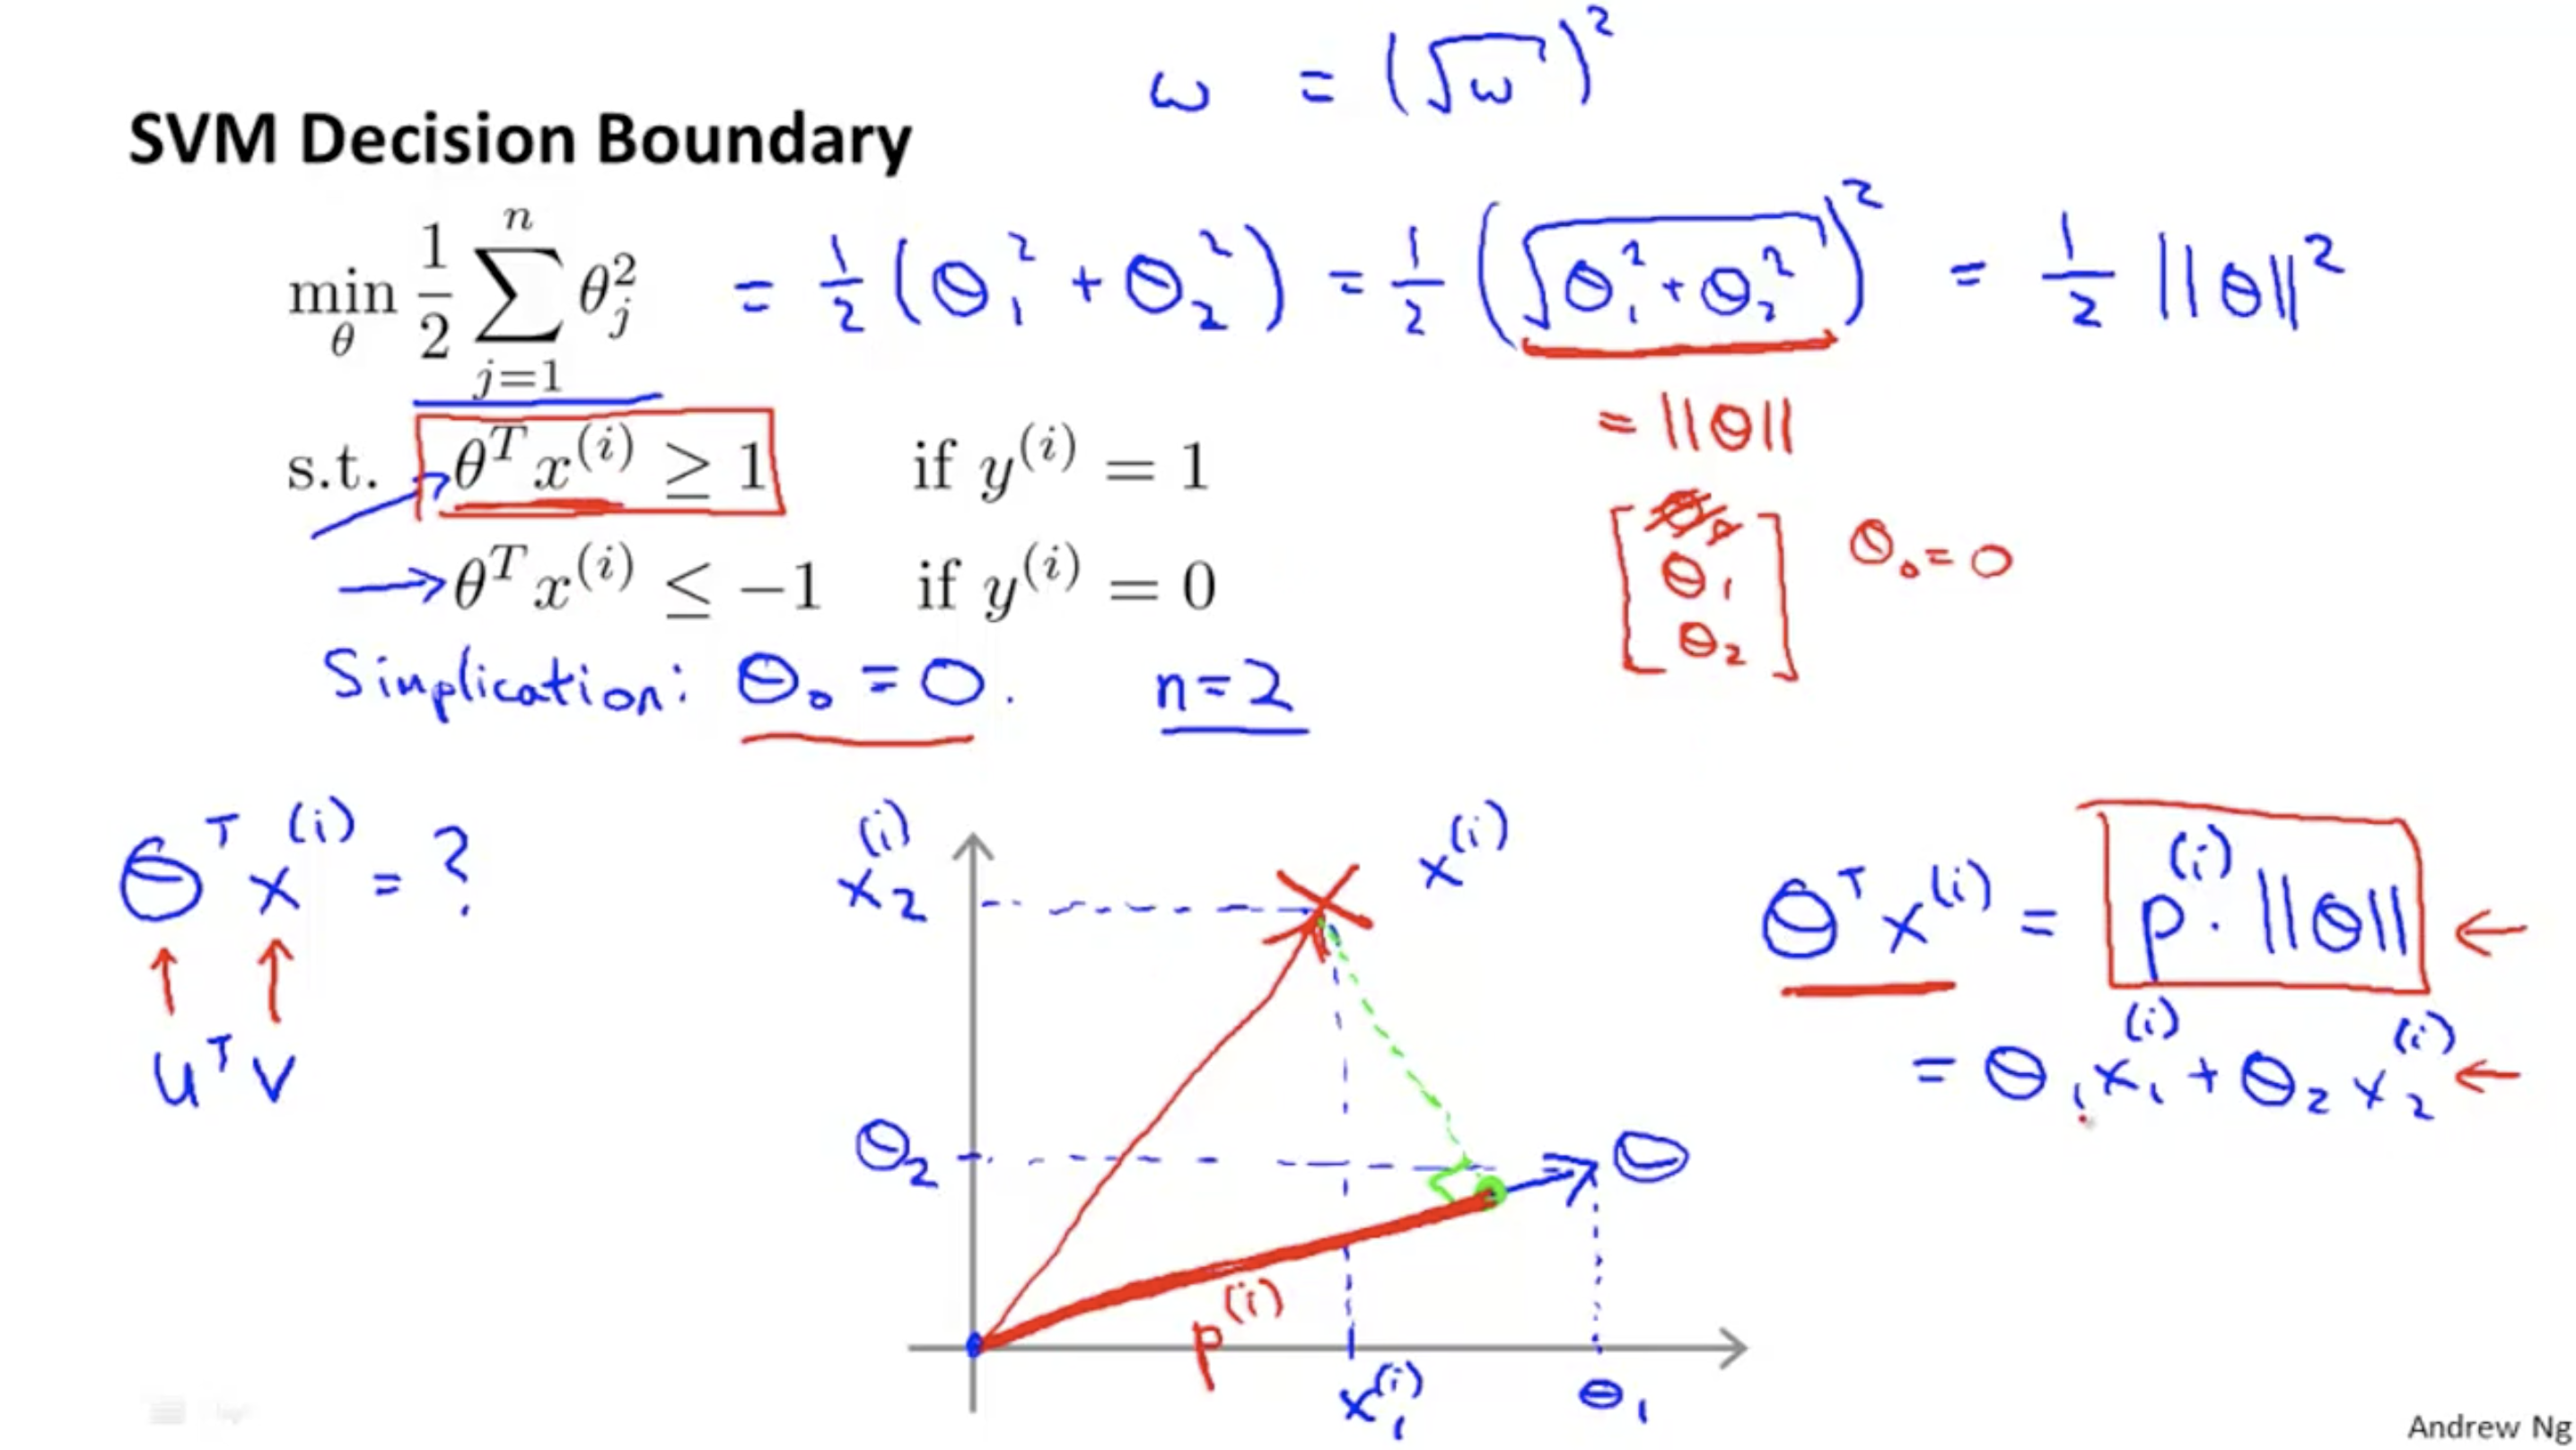 ω = (√ω)²
SVM Decision Boundary
min_θ 1/2 Σ_{j=1}^{n} θ_j² = 1/2 (θ₁² + θ₂²) = 1/2 (√(θ₁² + θ₂²))² = 1/2 ||θ||²
= ||θ||
s.t. θᵀx⁽ⁱ⁾ ≥ 1 if y⁽ⁱ⁾ = 1
θᵀx⁽ⁱ⁾ ≤ −1 if y⁽ⁱ⁾ = 0
[θ₀ θ₁ θ₂] θ₀ = 0
Simplication: θ₀ = 0. n=2
θᵀx⁽ⁱ⁾ = ?
uᵀv
x₂⁽ⁱ⁾
x⁽ⁱ⁾
θ₂
θ
p⁽ⁱ⁾
x₁⁽ⁱ⁾
θ₁
θᵀx⁽ⁱ⁾ = p⁽ⁱ⁾ · ||θ|| ←
= θ₁x₁⁽ⁱ⁾ + θ₂x₂⁽ⁱ⁾ ←
Andrew Ng